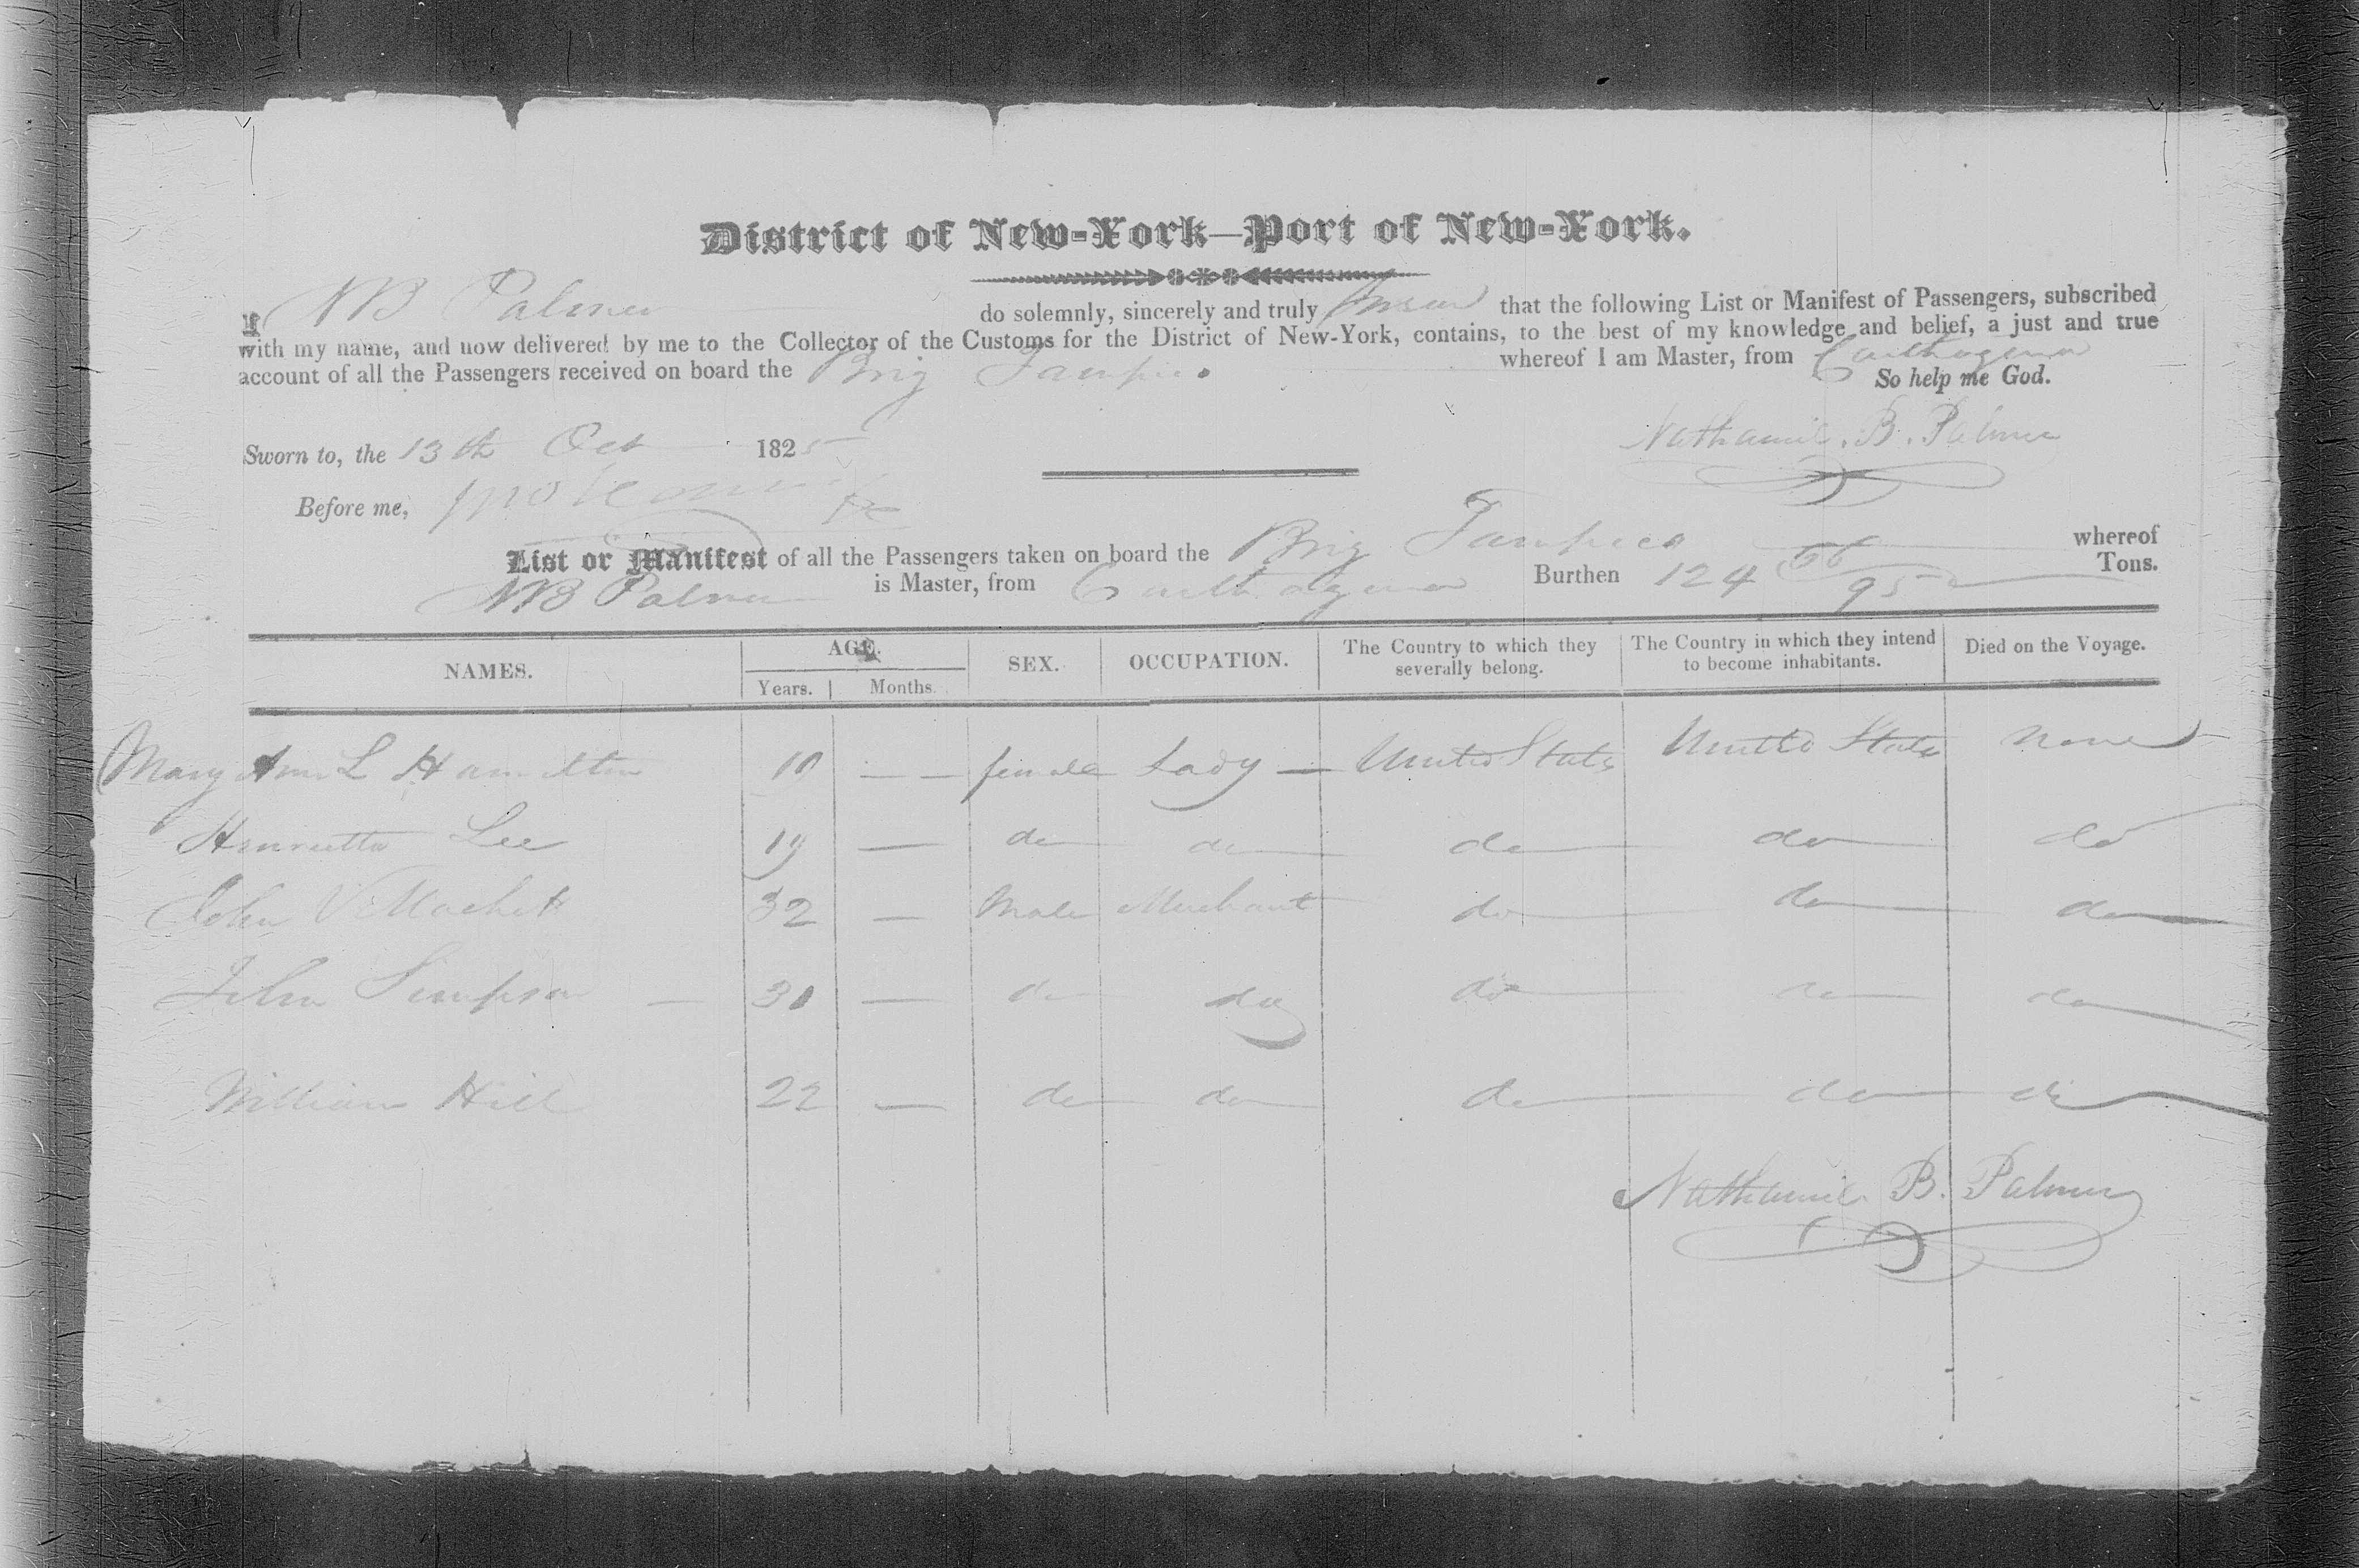 District of New-York—Port of New-York.
I, NB Palmer do solemnly, sincerely and truly swear that the following List or Manifest of Passengers, subscribed
with my name, and now delivered by me to the Collector of the Customs for the District of New-York, contains, to the best of my knowledge and belief, a just and true
account of all the Passengers received on board the Brig Tampico whereof I am Master, from Carthagena
So help me God.
Nathaniel. B. Palmer
Sworn to, the 13th Oct 1825
Before me,
List or Manifest of all the Passengers taken on board the Brig Tampico whereof
NB Palmer is Master, from Carthagena Burthen 124 /95 Tons.
NAMES. AGE. SEX. OCCUPATION. The Country to which they severally belong. The Country in which they intend to become inhabitants. Died on the Voyage.
Years. Months.
Mary Ann L Hamilton — — female Lady — United States United States None
Henrietta Lee 19 — do do do do do
John V 32 — Male Merchant do do do
John Simpson — 30 — do do do do do
William Hill 22 — do do do do do
Nathaniel B. Palmer